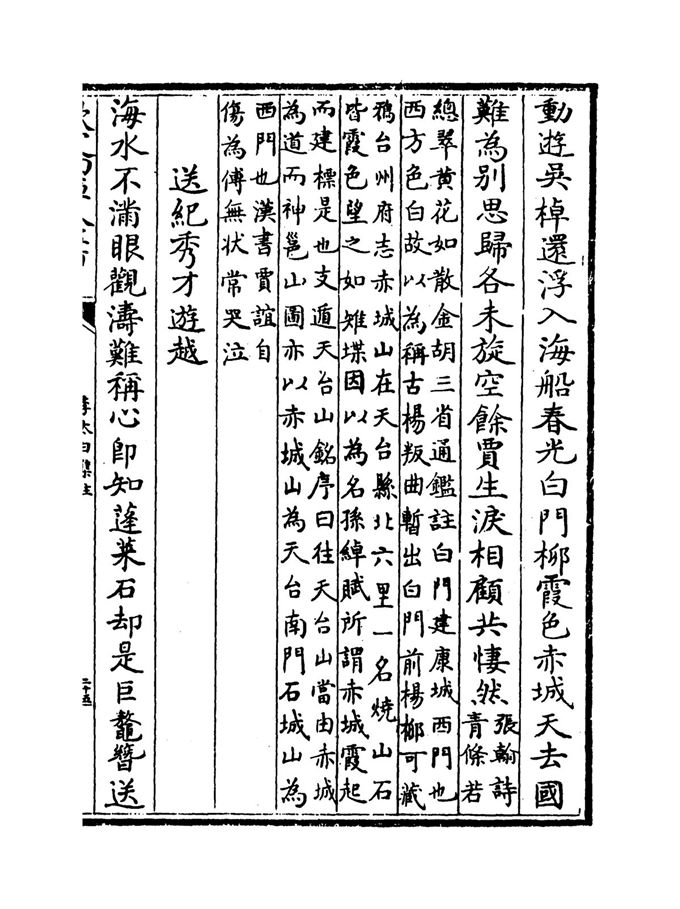 動遊吳棹還浮入海船春光白門栁霞色赤城天去國
難為别思歸各未旋空餘賈生淚相顧共悽然張翰詩
青條若
總翠黄花如散金胡三省通鑑註白門建康城西門也
西方色白故以為稱古楊叛曲暫出白門前楊栁可藏
鴉台州府志赤城山在天台縣北六里一名燒山石
皆霞色望之如雉堞因以為名孫綽賦所謂赤城霞起
而建標是也支遁天台山銘序曰往天台山當由赤城
為道而神邕山圖亦以赤城山為天台南門石城山為
西門也漢書賈誼自
傷為傅無狀常哭泣
送紀秀才遊越
海水不滿眼觀濤難稱心即知蓬萊石却是巨鼇簪送
李太白集注
二十五